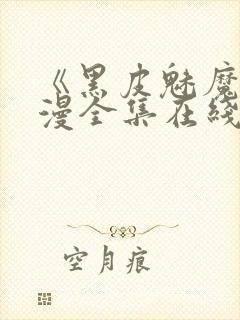 《黑皮魅魔
漫全集在线
空月痕